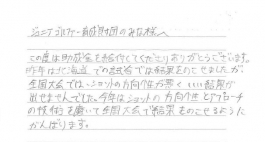 ジュニアゴルファー育成財団のみな様へ
この度は助成金を給付してくださりありがとうございます。
昨年は北海道での試合では結果をのこせましたが
全国大会では、ショットの方向性が悪くいい結果が
出せませんでした。今年はショットの方向性とアプローチ
の技術を磨いて全国大会で結果をのこせるように
がんばります。